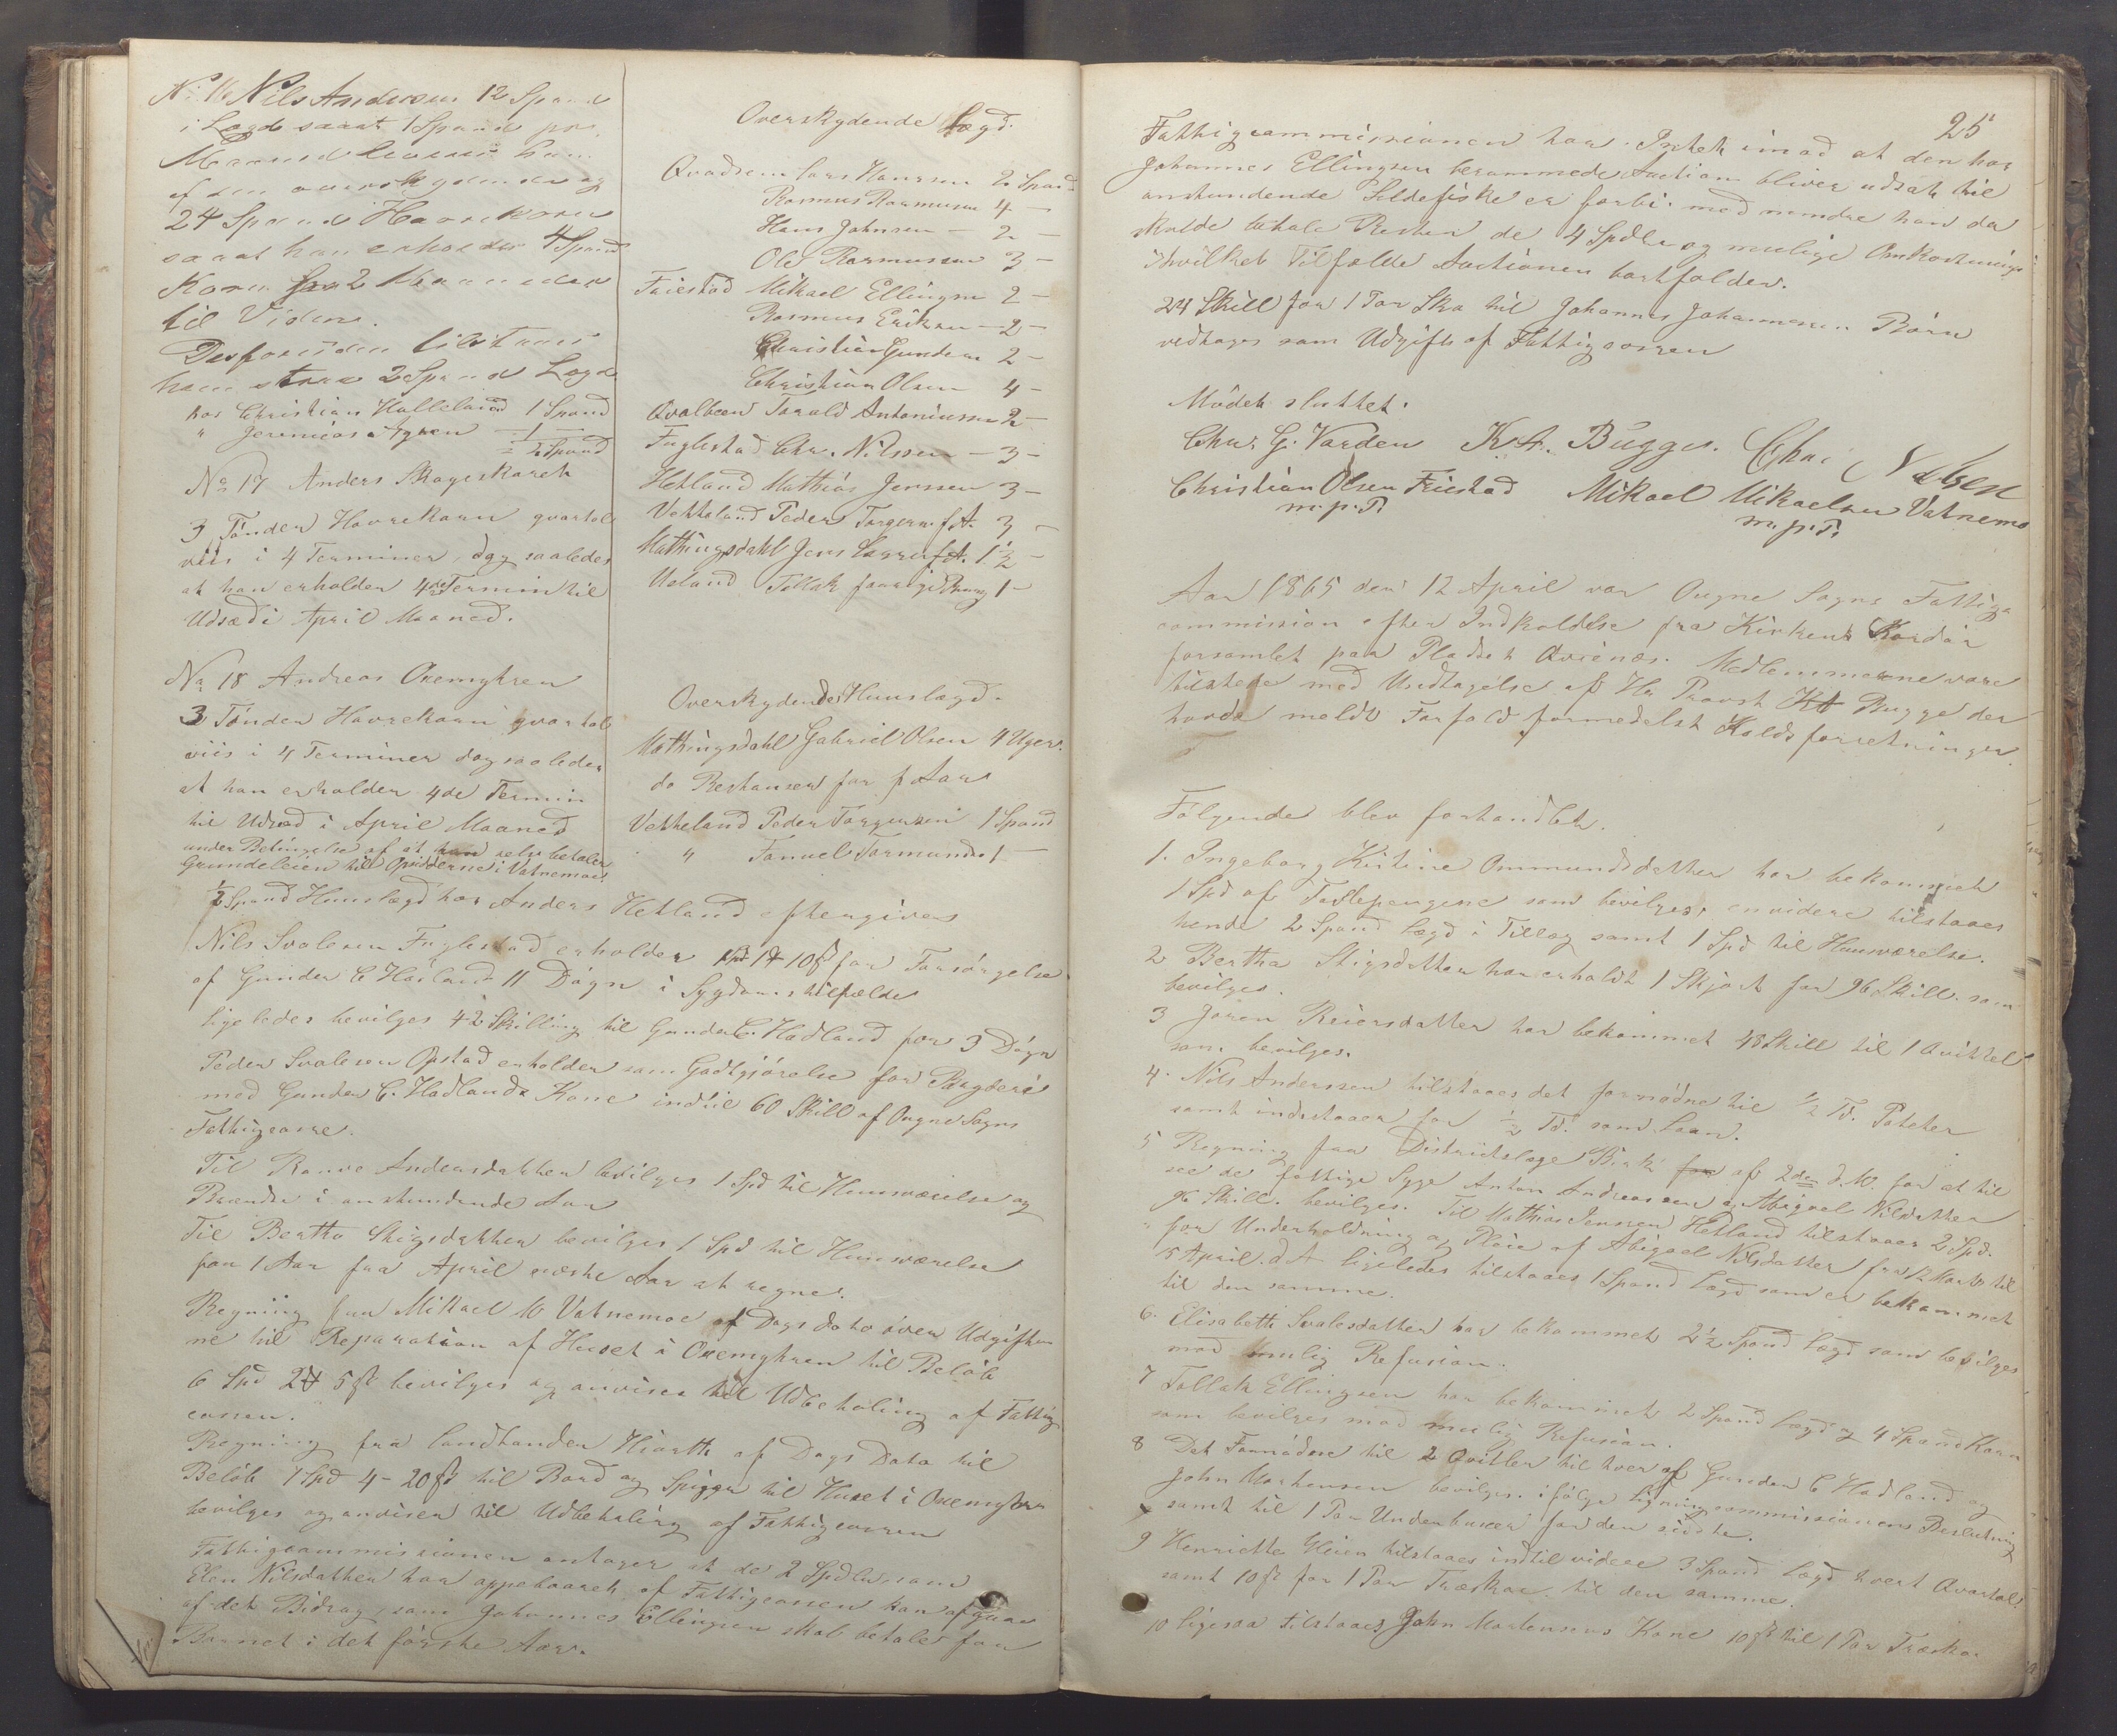 No 16 Nils Andersen 12 Spand
i Lægd samt 1 Spand pr.
Maaned
af den overskydende og
24 Spand Havrekorn
saaat han erholder 4 Spand
Korn for 2 Maaneder
til Videre.
Desforuden tilstaaes
ham 2 Spand Lægd
hos Christian Halleland 1 Spand
" Jeremias 1
= 2 Spand
No 17 Anders Skageskaret
3 Tönder Havrekorn qvartal
viis i 4 Terminer dog saaledes
at han erholder 4de Termin til
Udsæd i April Maaned.
No 18 Andreas Oremyhren
3 Tönder Havrekorn qvartal
viis i 4 Terminer dog saaledes
at han erholder 4de Termin
til Udsæd i April Maaned
under Betingelse af at han selv betaler
Grundeleien til Opsidderne i Vatnemoe.
Overskydende Lægd.
Qvadsem Lars Hansen 2 Spand
Rasmus Rasmusen 4 —
Hans Johnsen — 2 —
Ole Rasmussen 3 —
Friestad Mikael Ellingsen 2 —
Rasmus Eriksen — 2 —
Christian Gundersen 2 —
Christian Olsen 4 —
Qvalbein Torald Antoniussen 2 —
Fuglestad Chr. Nilssen — 3 —
Hetland Mathias Jenssen 3 —
Vetteland Peder Torgersen f.A. 3 —
Mathingsdahl Jens f.A. 1½ —
Ueland Tollak 1 —
Overskydende Huuslægd.
Mathingsdahl Gabriel Olsen 4 Uger.
do Restancer for f Aar
Vetteland Peder Torgersen 1 Spand
" Tønnes Tormunds 1 —
½ Spand Huuslægd hos Anders Hetland eftergives
Nils Svalesen Fuglestad erholder 1 10 ß for Forsørgelse
af Gunder C Hadland 11 Dögn i Sygdomstilfælde
ligeledes bevilges 42 Skilling til Gunder C. Hadland for 3 Dögn
Peder Svalesen Opstad erholder som Godtgjörelse for Bryderi
med Gunder C. Hadlands Kone indtil 60 Skill af Ougne Sogns
Fattigcasse.
Til Ranve Andersdatter bevilges 1 Spd til Huusværelse og
Brænde i anstundende Aar
Til Bertha Stigsdatter bevilges 1 Spd til Huusværelse
for 1 Aar fra April næste Aar at regne.
Regning fra Mikael M Vatnemoe af Dags dato over Udgifter
ne til Reparation af Huset i Oremyhren til Belöb
6 Spd 2 5 ß bevilges og anvises til Udbetaling af Fattig
cassen.
Regning fra Landhandler Hiorth af Dags Dato til
Belöb 1 Spd 4 – 20 ß til Bord og Spiger til Huset i Oremyhren
bevilges og anvises til Udbetaling af Fattigcassen
Fattigcommissionen antager at de 2 Spdlr som
Elen Nilsdatter har oppebaaret af Fattigcassen kan afgaae
af det Bidrag som Johannes Ellingsen skal betale for
Barnet i det förste Aar.
25
Fattigcommissionen har Intet imod at den hos
Johannes Ellingsen berammede Auction bliver udsat til
anstundende Sildefiske er forbi med mindre han da
skulde betale Resten de 4 Spdlr og mulige Omkostninger
i hvilket Tilfælde Auctionen bortfalder.
24 Skill for 1 Par Sko til Johannes Johannessens Börn
vedtages som Udgift af Fattigcassen
Mödet sluttet.
Chr. G. Varden K A. Bugge. Chr. Nilsen
Christian Olsen Friestad Mikael Mikaelsen Vatnemo
m.p.P. m.p.P.
Aar 1865 den 12 April var Ougne Sogns Fattig
commission efter Indkaldelse fra Kirkens
forsamlet paa Pladset Qvienæs. Medlemmerne vare
tilstede med Undtagelse af Hr Provst KA Bugge der
havde meldt Forfald formedelst Kaldsforretninger.
Fölgende blev forhandlet.
1. Ingeborg Kirstine Ommundsdatter har bekommet
1 Spd af som bevilges, envidere tilstaaes
hende 2 Spand Lægd i Tillæg samt 1 Spd til Huusværelse.
2 Bertha Stigsdatter har erholdt 1 Skjört for 96 Skill. som
bevilges.
3 Joren Reiersdatter har bekommet 48 Skill til 1 Qvittel
som bevilges.
4. Nils Anderssen tilstaaes det fornödne til ½ Td. Poteter
samt indestaaer for ½ Td. som Laan.
5 Regning fra Districtslæge Birk af 2den d.M. for at til
see de fattige Syge Anton Andreassen og Abigael Nilsdatter
96 Skill. bevilges. Til Mathias Jenssen Hetland tilstaaes 2 Spd.
for Underholdning og Pleie af Abigael Nilsdatter fra 12 Marts til
5 April. d A ligeledes tilstaaes 1 Spand Lægd som er bekommet
til den samme.
6. Elisabeth Svalesdatter har bekommet 2½ Spand Lægd som bevilges
mod mulig Refusion.
7 Tollak Ellingsen har bekommet 2 Spand Lægd og 4 Spand Korn
som bevilges mod mulig Refusion.
8 Det Fornödne til 2 Qvitler til hver af Gunder C Hadland og
John Mortensen bevilges ifölge Ligningscommissionens Beslutning
samt til 1 Par Underbuxer for den sidste.
9 Henriette Heien tilstaaes indtil videre 3 Spand Lægd hvert Qvartal.
samt 10 ß for 1 Par Træskoe til den samme.
10 ligesaa tilstaaes John Mortensens Kone 10 ß til 1 Par Træskoe